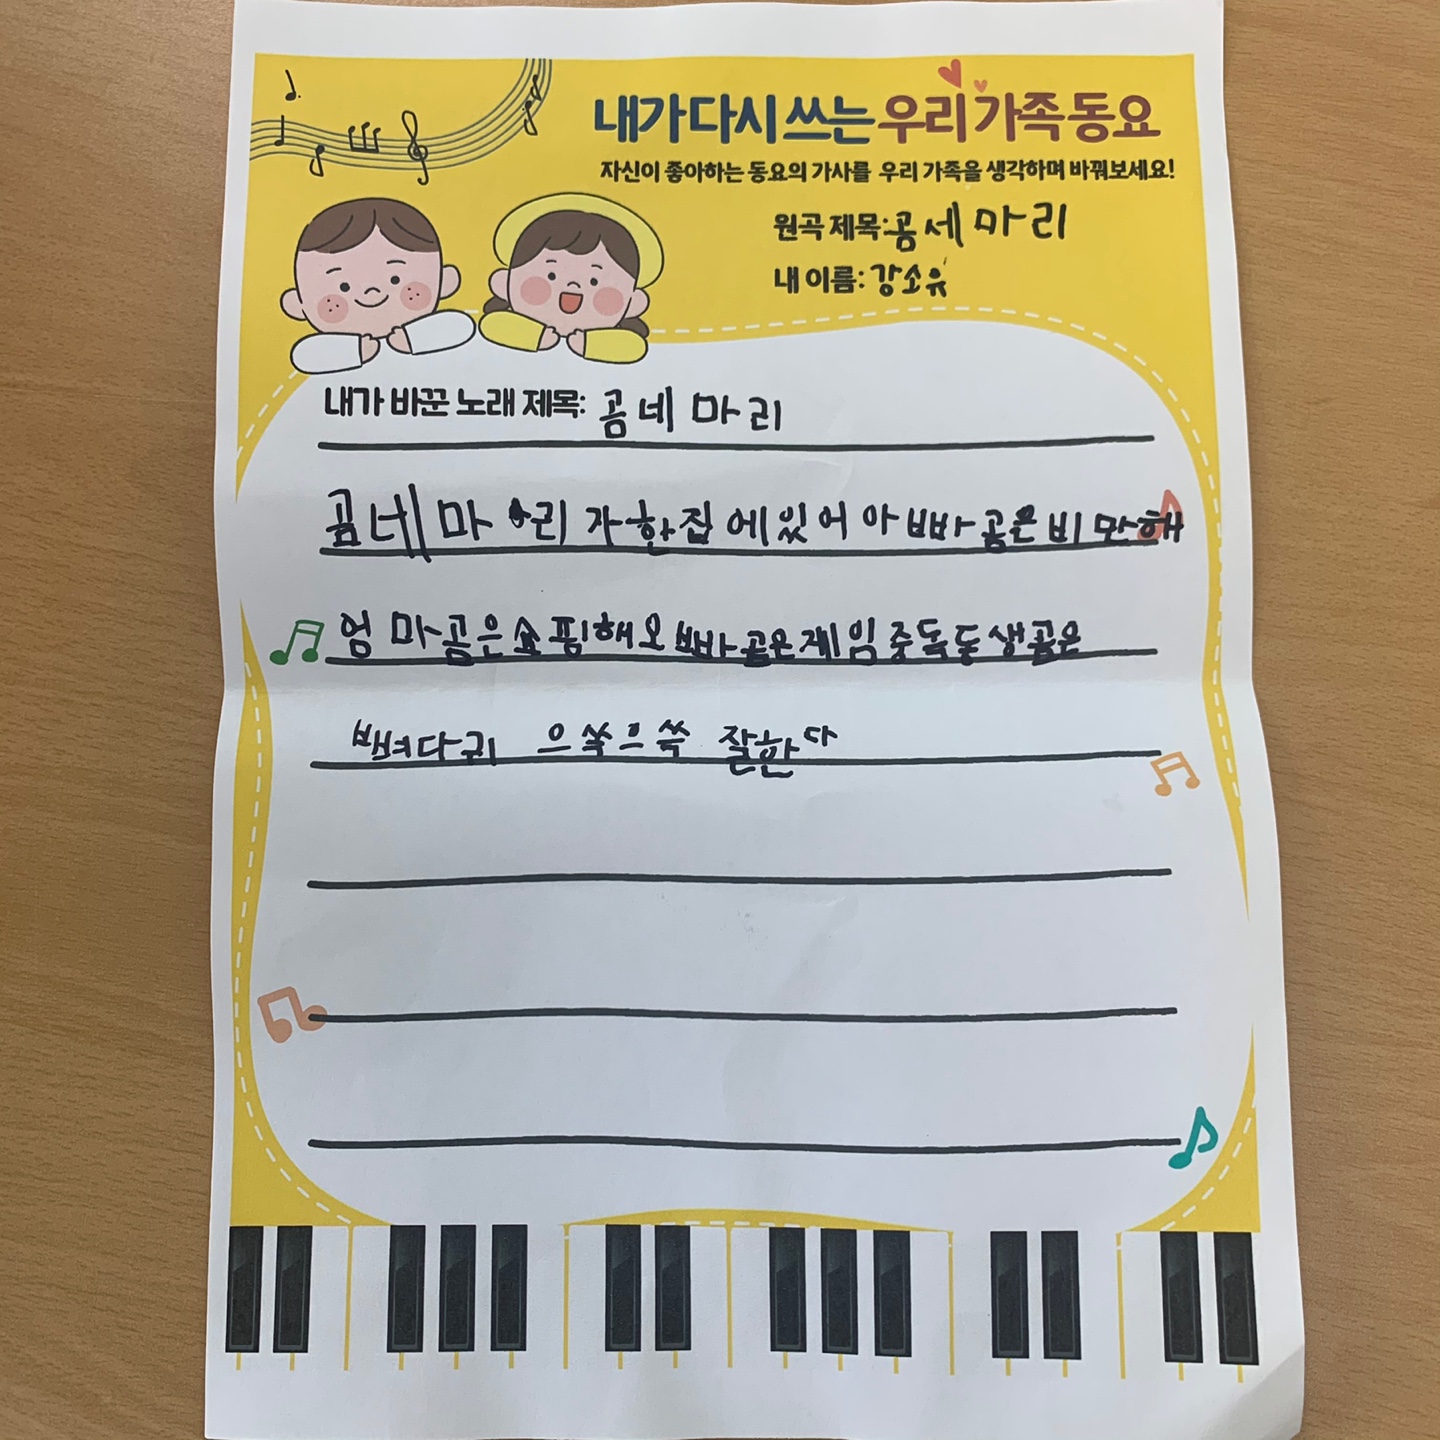 내가 다시 쓰는 우리 가족 동요
자신이 좋아하는 동요의 가사를 우리 가족을 생각하며 바꿔보세요!
원곡 제목: 곰 세 마리
내 이름: 강소유
내가 바꾼 노래 제목: 곰 네 마리
곰 네 마 리 가 한 집 에 있 어 아 빠 곰은 비 만해
엄 마곰은쇼핑해오빠곰은게임중독동생곰은
으쓱으쓱 잘한다